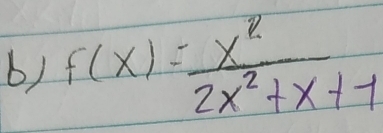 b) f(x) = x²
2x² + x + 1